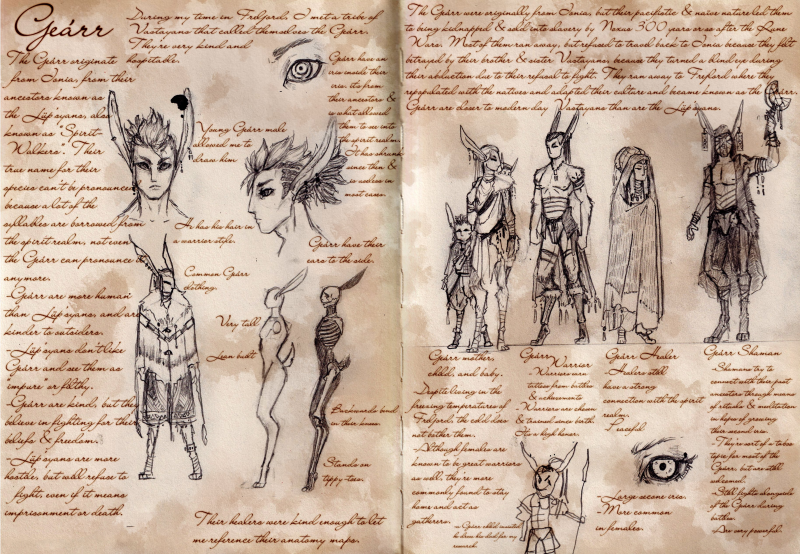 Geárr
During my time in Freljord, I met a tribe of
Vastayans that called themselves the Geárr.
They're very kind and
hospitable.
The Geárr originate
from Ionia, from their
ancestors known as
the Läp'syans, also
known as "Spirit
Walkers". Their
true name for their
species can't be pronounced
because a lot of the
syllables are borrowed from
the spirit realm, not even
the Geárr can pronounce it
anymore.
-Geárr are more human
than Läp'syans, and are
kinder to outsiders.
-Läp'syans don't like
Geárr and see them as
impure or filthy.
-Geárr are kind, but they
believe in fighting for their
beliefs & freedom.
-Läp'syans are more
hostile, but will refuse to
fight, even if it means
imprisonment or death.
Young Geárr male
allowed me to
draw him
He has his hair in
a warrior style.
Geárr have an
iris inside their
iris, it's from
their ancestors &
is what allowed
them to see into
the spirit realm.
It has shrunk
since then &
is useless in
most cases.
Geárr have their
ears to the side.
Common Geárr
clothing.
Very tall
Lean built
Backwards bend
in their knees
Stands on
tippy-toes.
Their healers were kind enough to let
me reference their anatomy maps.
The Geárr were originally from Ionia, but their pacifistic & naive nature led them
to being kidnapped & sold into slavery by Noxus 300 years or so after the Rune
Wars. Most of them ran away, but refused to travel back to Ionia because they felt
betrayed by their brother & sister Vastayans, because they turned a blind eye during
their abduction due to their refusal to fight. They ran away to Freljord where they
repopulated with the natives and adapted their culture and became known as the Geárr.
Geárr are closer to modern day Vastayans than are the Läp'syans.
Geárr mother,
child, and baby.
Despite living in the
freezing temperatures of
Freljord, the cold does
not bother them.
-Although females are
known to be great warriors
as well, they're more
commonly found to stay
home and act as
gatherers.
Geárr Warrior
-Warriors wear
tattoos from battles
& achievements
Warriors are chosen
& trained since birth.
It's a high honor.
Geárr Healer
-Healers still
have a strong
connection with the spirit
realm.
-Peaceful
Geárr Shaman
Shamans try to
connect with their past
ancestors through means
of rituals & meditation
in hopes of growing
their second iris.
-They're sort of a taboo
topic for most of the
Geárr, but are still
welcomed.
-Still fights alongside
of the Geárr during
battles.
-Are very powerful.
-Large second iris.
-More common
in females.
-a Geárr child insisted
he draw his dad for my
research.